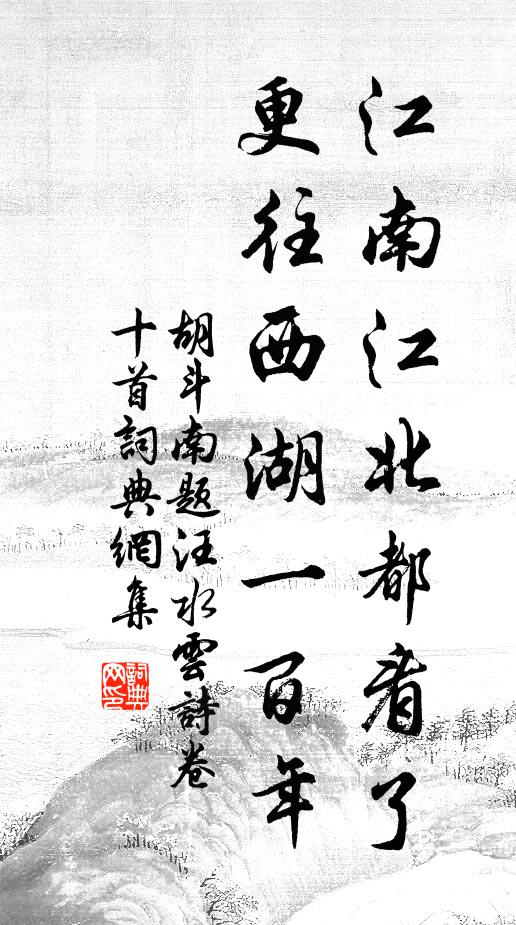 江南江北都看了
更往西湖一百年
胡斗南题汪水雲詩卷
十首詞典網集
詞典網印